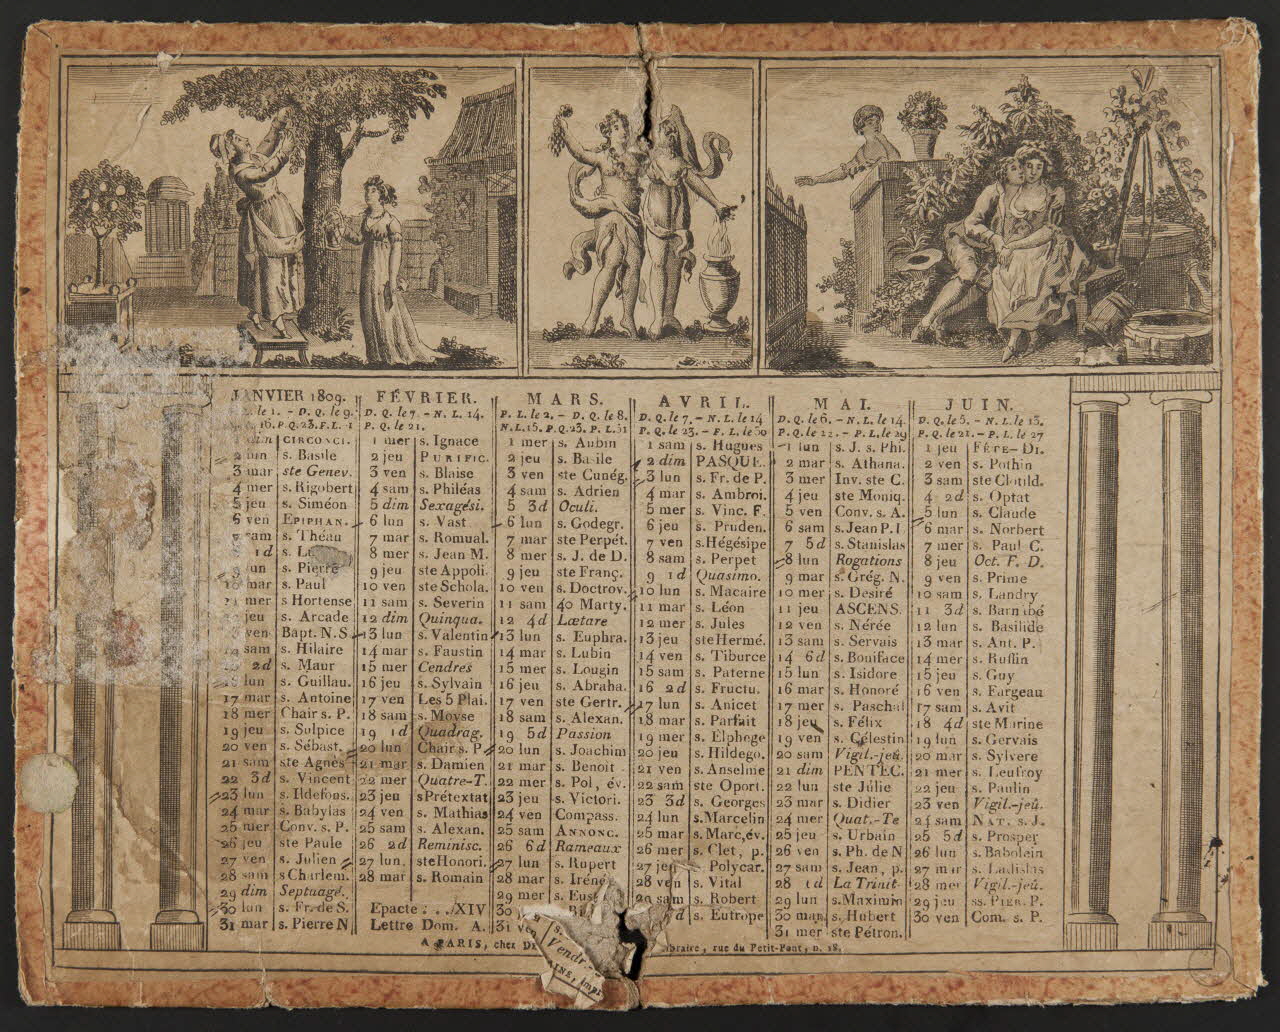 JANVIER 1809.
L. le 1. - D. Q. le 9.
le 16. P. Q. 23. F. L. 31
dim CIRCONCI.
2 lun s. Basile
3 mar ste Genev.
4 mer s. Rigobert
5 jeu s. Siméon
6 ven EPIPHAN.
7 sam s. Théau
1d s.
lun s. Pierre
10 mar s. Paul
11 mer s. Hortense
jeu s. Arcade
ven Bapt. N. S
14 sam s. Hilaire
2d s. Maur
16 lun s. Guillau.
17 mar s. Antoine
18 mer Chair s. P.
19 jeu s. Sulpice
20 ven s. Sébast.
21 sam ste Agnès
22 3d s. Vincent
23 lun s. Ildefons.
24 mar s. Babylas
25 mer Conv. s. P.
26 jeu ste Paule
27 ven s. Julien
28 sam s Charlem.
29 dim Septuagé.
30 lun s. Fr. de S.
31 mar s. Pierre N
FÉVRIER.
D. Q. le 7. - N. L. 14.
P. Q. le 21.
1 mer s. Ignace
2 jeu PURIFIC.
3 ven s. Blaise
4 sam s. Philéas
5 dim Sexagési.
6 lun s. Vast
7 mar s. Romual.
8 mer s. Jean M.
9 jeu ste Appoli.
10 ven ste Schola.
11 sam s. Severin
12 dim Quinqua.
13 lun s. Valentin
14 mar s. Faustin
15 mer Cendres
16 jeu s. Sylvain
17 ven Les 5 Plai.
18 sam s. Moyse
19 1d Quadrag.
20 lun Chair s. P
21 mar s. Damien
22 mer Quatre-T.
23 jeu s Prétextat
24 ven s. Mathias
25 sam s. Alexan.
26 2d Reminisc.
27 lun. ste Honori.
28 mar s. Romain
Epacte : .. XIV
Lettre Dom. A.
MARS.
P. L. le 2. - D. Q. le 8.
N. L. 15. P. Q. 23. P. L. 31
1 mer s. Aubin
2 jeu s. Basile
3 ven ste Cunég.
4 sam s. Adrien
5 3d Oculi.
6 lun s. Godegr.
7 mar ste Perpét.
8 mer s. J. de D.
9 jeu ste Franç.
10 ven s. Doctrov.
11 sam 40 Marty.
12 4d Lœtare
13 lun s. Euphra.
14 mar s. Lubin
15 mer s. Lougin
16 jeu s. Abraha.
17 ven ste Gertr.
18 sam s. Alexan.
19 5d Passion
20 lun s. Joachim
21 mar s. Benoit
22 mer s. Pol, év.
23 jeu s. Victori.
24 ven Compass.
25 sam ANNONC.
26 6d Rameaux
27 lun s. Rupert
28 mar s. Iréné
29 mer s. Eust
30
31 ven
AVRIL.
D. Q. le 7. - N. L. le 14
P. Q. le 23. - P. L. le 30
1 sam s. Hugues
2 dim PASQUE.
3 lun s. Fr. de P.
4 mar s. Ambroi.
5 mer s. Vinc. F.
6 jeu s. Pruden.
7 ven s. Hégésipe
8 sam s. Perpet
9 1d Quasimo.
10 lun s. Macaire
11 mar s. Léon
12 mer s. Jules
13 jeu ste Hermé.
14 ven s. Tiburce
15 sam s. Paterne
16 2d s. Fructu.
17 lun s. Anicet
18 mar s. Parfait
19 mer s. Elphege
20 jeu s. Hildego.
21 ven s. Anselme
22 sam ste Oport.
23 3d s. Georges
24 lun s. Marcelin
25 mar s. Marc, év.
26 mer s. Clet, p.
27 jeu s. Polycar.
28 ven s. Vital
29 sam s. Robert
d s. Eutrope
MAI.
D. Q. le 6. - N. L. le 14.
P. Q. le 22. - P. L. le 29
1 lun s. J. s. Phi.
2 mar s. Athana.
3 mer Inv. ste C.
4 jeu ste Moniq.
5 ven Conv. s. A.
6 sam s. Jean P. l
7 5d s. Stanislas
8 lun Rogations
9 mar s. Grég. N.
10 mer s. Desiré
11 jeu ASCENS.
12 ven s. Nérée
13 sam s. Servais
14 6d s. Boniface
15 lun s. Isidore
16 mar s. Honoré
17 mer s. Paschal
18 jeu s. Félix
19 ven s. Célestin
20 sam Vigil.-jeû.
21 dim PENTEC.
22 lun ste Julie
23 mar s. Didier
24 mer Quat.-Te
25 jeu s. Urbain
26 ven s. Ph. de N
27 sam s. Jean, p.
28 1d La Trinit
29 lun s. Maximin
30 mar s. Hubert
31 mer ste Pétron.
JUIN.
D. Q. le 5. - N. L. le 13.
P. Q. le 21. - P. L. le 27
1 jeu FÊTE-DI.
2 ven s. Pothin
3 sam ste Clotild.
4 2d s. Optat
5 lun s. Claude
6 mar s. Norbert
7 mer s. Paul C.
8 jeu Oct. F. D.
9 ven s. Prime
10 sam s. Landry
11 3d s. Barnabé
12 lun s. Basilide
13 mar s. Ant. P.
14 mer s. Ruffin
15 jeu s. Guy
16 ven s. Fargeau
17 sam s. Avit
18 4d ste Marine
19 lun s. Gervais
20 mar s. Sylvere
21 mer s. Leufroy
22 jeu s. Paulin
23 ven Vigil.-jeû.
24 sam NAT. s. J.
25 5d s. Prosper
26 lun s. Babolein
27 mar s. Ladislas
28 mer Vigil.-jeû.
29 jeu ss. PIER. P.
30 ven Com. s. P.
A PARIS, chez
braire, rue du Petit-Pont, n. 18.
Vendr
AINE, imp